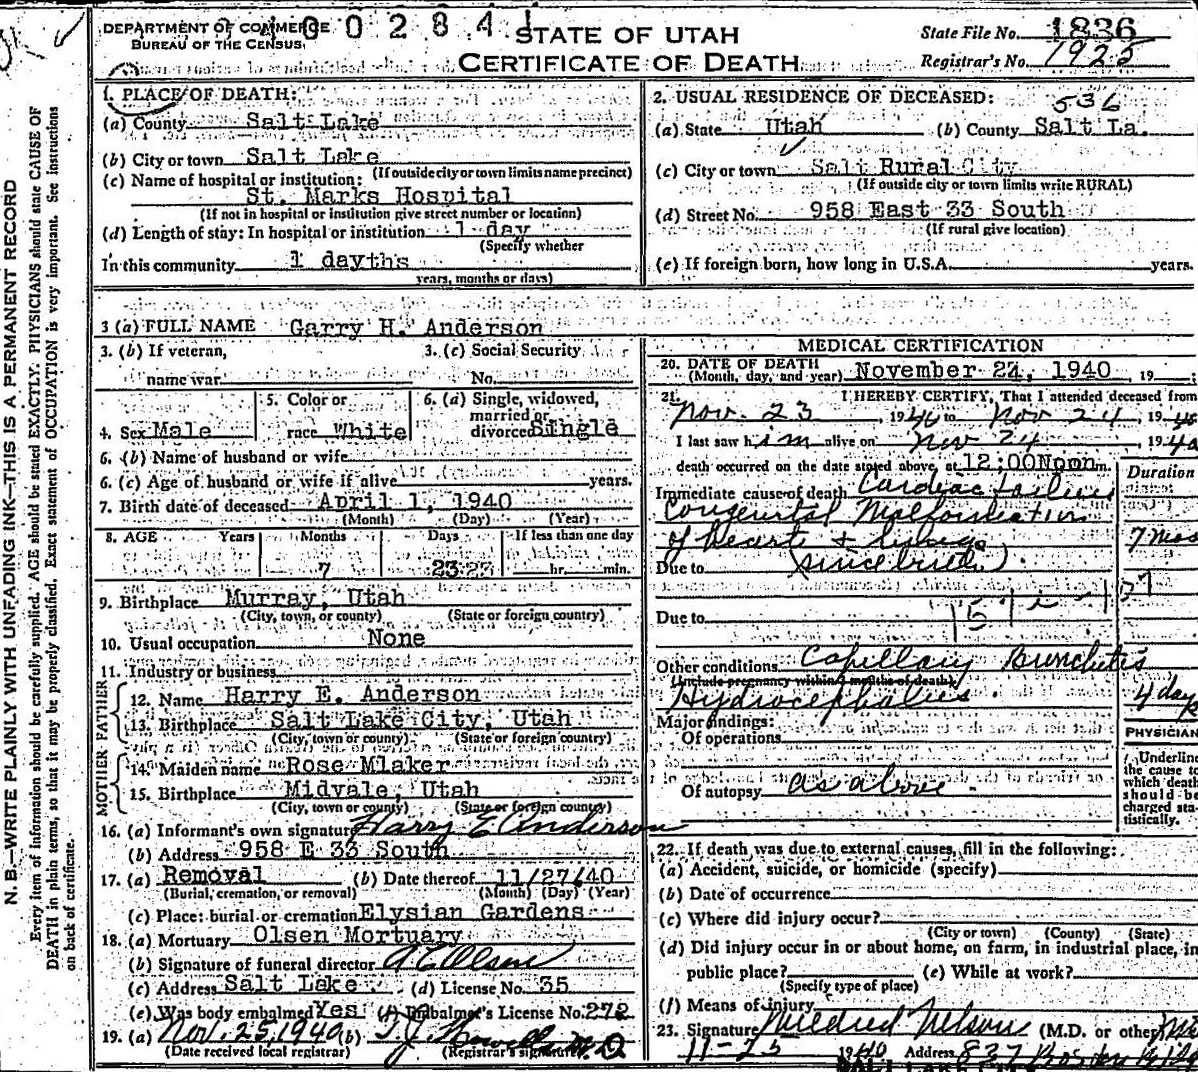 DEPARTMENT OF COMMERCE
BUREAU OF THE CENSUS
100284
STATE OF UTAH
CERTIFICATE OF DEATH
State File No. 1836
Registrar's No. 1925
N. B.—WRITE PLAINLY WITH UNFADING INK—THIS IS A PERMANENT RECORD
Every item of information should be carefully supplied. AGE should be stated EXACTLY. PHYSICIANS should state CAUSE OF
DEATH in plain terms, so that it may be properly classified. Exact statement of OCCUPATION is very important. See instructions
on back of certificate.
1. PLACE OF DEATH:
(a) County Salt Lake
(b) City or town Salt Lake
(If outside city or town limits name precinct)
(c) Name of hospital or institution:
St. Marks Hospital
(If not in hospital or institution give street number or location)
(d) Length of stay: In hospital or institution 1 day
(Specify whether
In this community 1 day
years, months or days)
2. USUAL RESIDENCE OF DECEASED: 536
(a) State Utah (b) County Salt La.
(c) City or town Salt Rural City
(If outside city or town limits write RURAL)
(d) Street No. 958 East 33 South
(If rural give location)
(e) If foreign born, how long in U.S.A. years.
3 (a) FULL NAME Garry H. Anderson
3. (b) If veteran, 3. (c) Social Security
name war No.
4. Sex Male 5. Color or race White 6. (a) Single, widowed, married or divorced Single
6. (b) Name of husband or wife
6. (c) Age of husband or wife if alive years.
7. Birth date of deceased April 1, 1940
(Month) (Day) (Year)
8. AGE Years Months Days If less than one day
7 23 hr. min.
9. Birthplace Murray, Utah
(City, town, or county) (State or foreign country)
10. Usual occupation None
11. Industry or business
FATHER
12. Name Harry E. Anderson
13. Birthplace Salt Lake City, Utah
(City, town or county) (State or foreign country)
MOTHER
14. Maiden name Rose Mlaker
15. Birthplace Midvale, Utah
(City, town or county) (State or foreign country)
16. (a) Informant's own signature Harry E Anderson
(b) Address 958 E 33 South
17. (a) Removal (b) Date thereof 11/27/40
(Burial, cremation, or removal) (Month) (Day) (Year)
(c) Place: burial or cremation Elysian Gardens
18. (a) Mortuary Olsen Mortuary
(b) Signature of funeral director A E Olsen
(c) Address Salt Lake (d) License No. 35
(e) Was body embalmed Yes (f) Embalmer's License No. 272
19. (a) Nov. 25, 1940 (b) T. J. Howells M.D
(Date received local registrar) (Registrar's signature)
MEDICAL CERTIFICATION
20. DATE OF DEATH
(Month, day, and year) November 24, 1940, 19
21. I HEREBY CERTIFY, That I attended deceased from
Nov. 23, 1940 to Nov 24, 1940
I last saw him alive on Nov 24, 1940
death occurred on the date stated above, at 12:00Noon m.
Duration
Immediate cause of death Cardiac failure
Congenital Malformation
of heart & lungs 7 mos
Due to (since birth).
Due to 157
Other conditions Capillary Bronchitis
(Include pregnancy within 3 months of death)
Hydrocephalus. 4 day
Major findings:
Of operations
Of autopsy as above.
PHYSICIAN
Underline
the cause to
which death
should be
charged sta-
tistically.
22. If death was due to external causes, fill in the following:
(a) Accident, suicide, or homicide (specify)
(b) Date of occurrence
(c) Where did injury occur?
(City or town) (County) (State)
(d) Did injury occur in or about home, on farm, in industrial place, in
public place? (e) While at work?
(Specify type of place)
(f) Means of injury
23. Signature Mildred Nelson (M.D. or other)
11-25 1940 Address 837